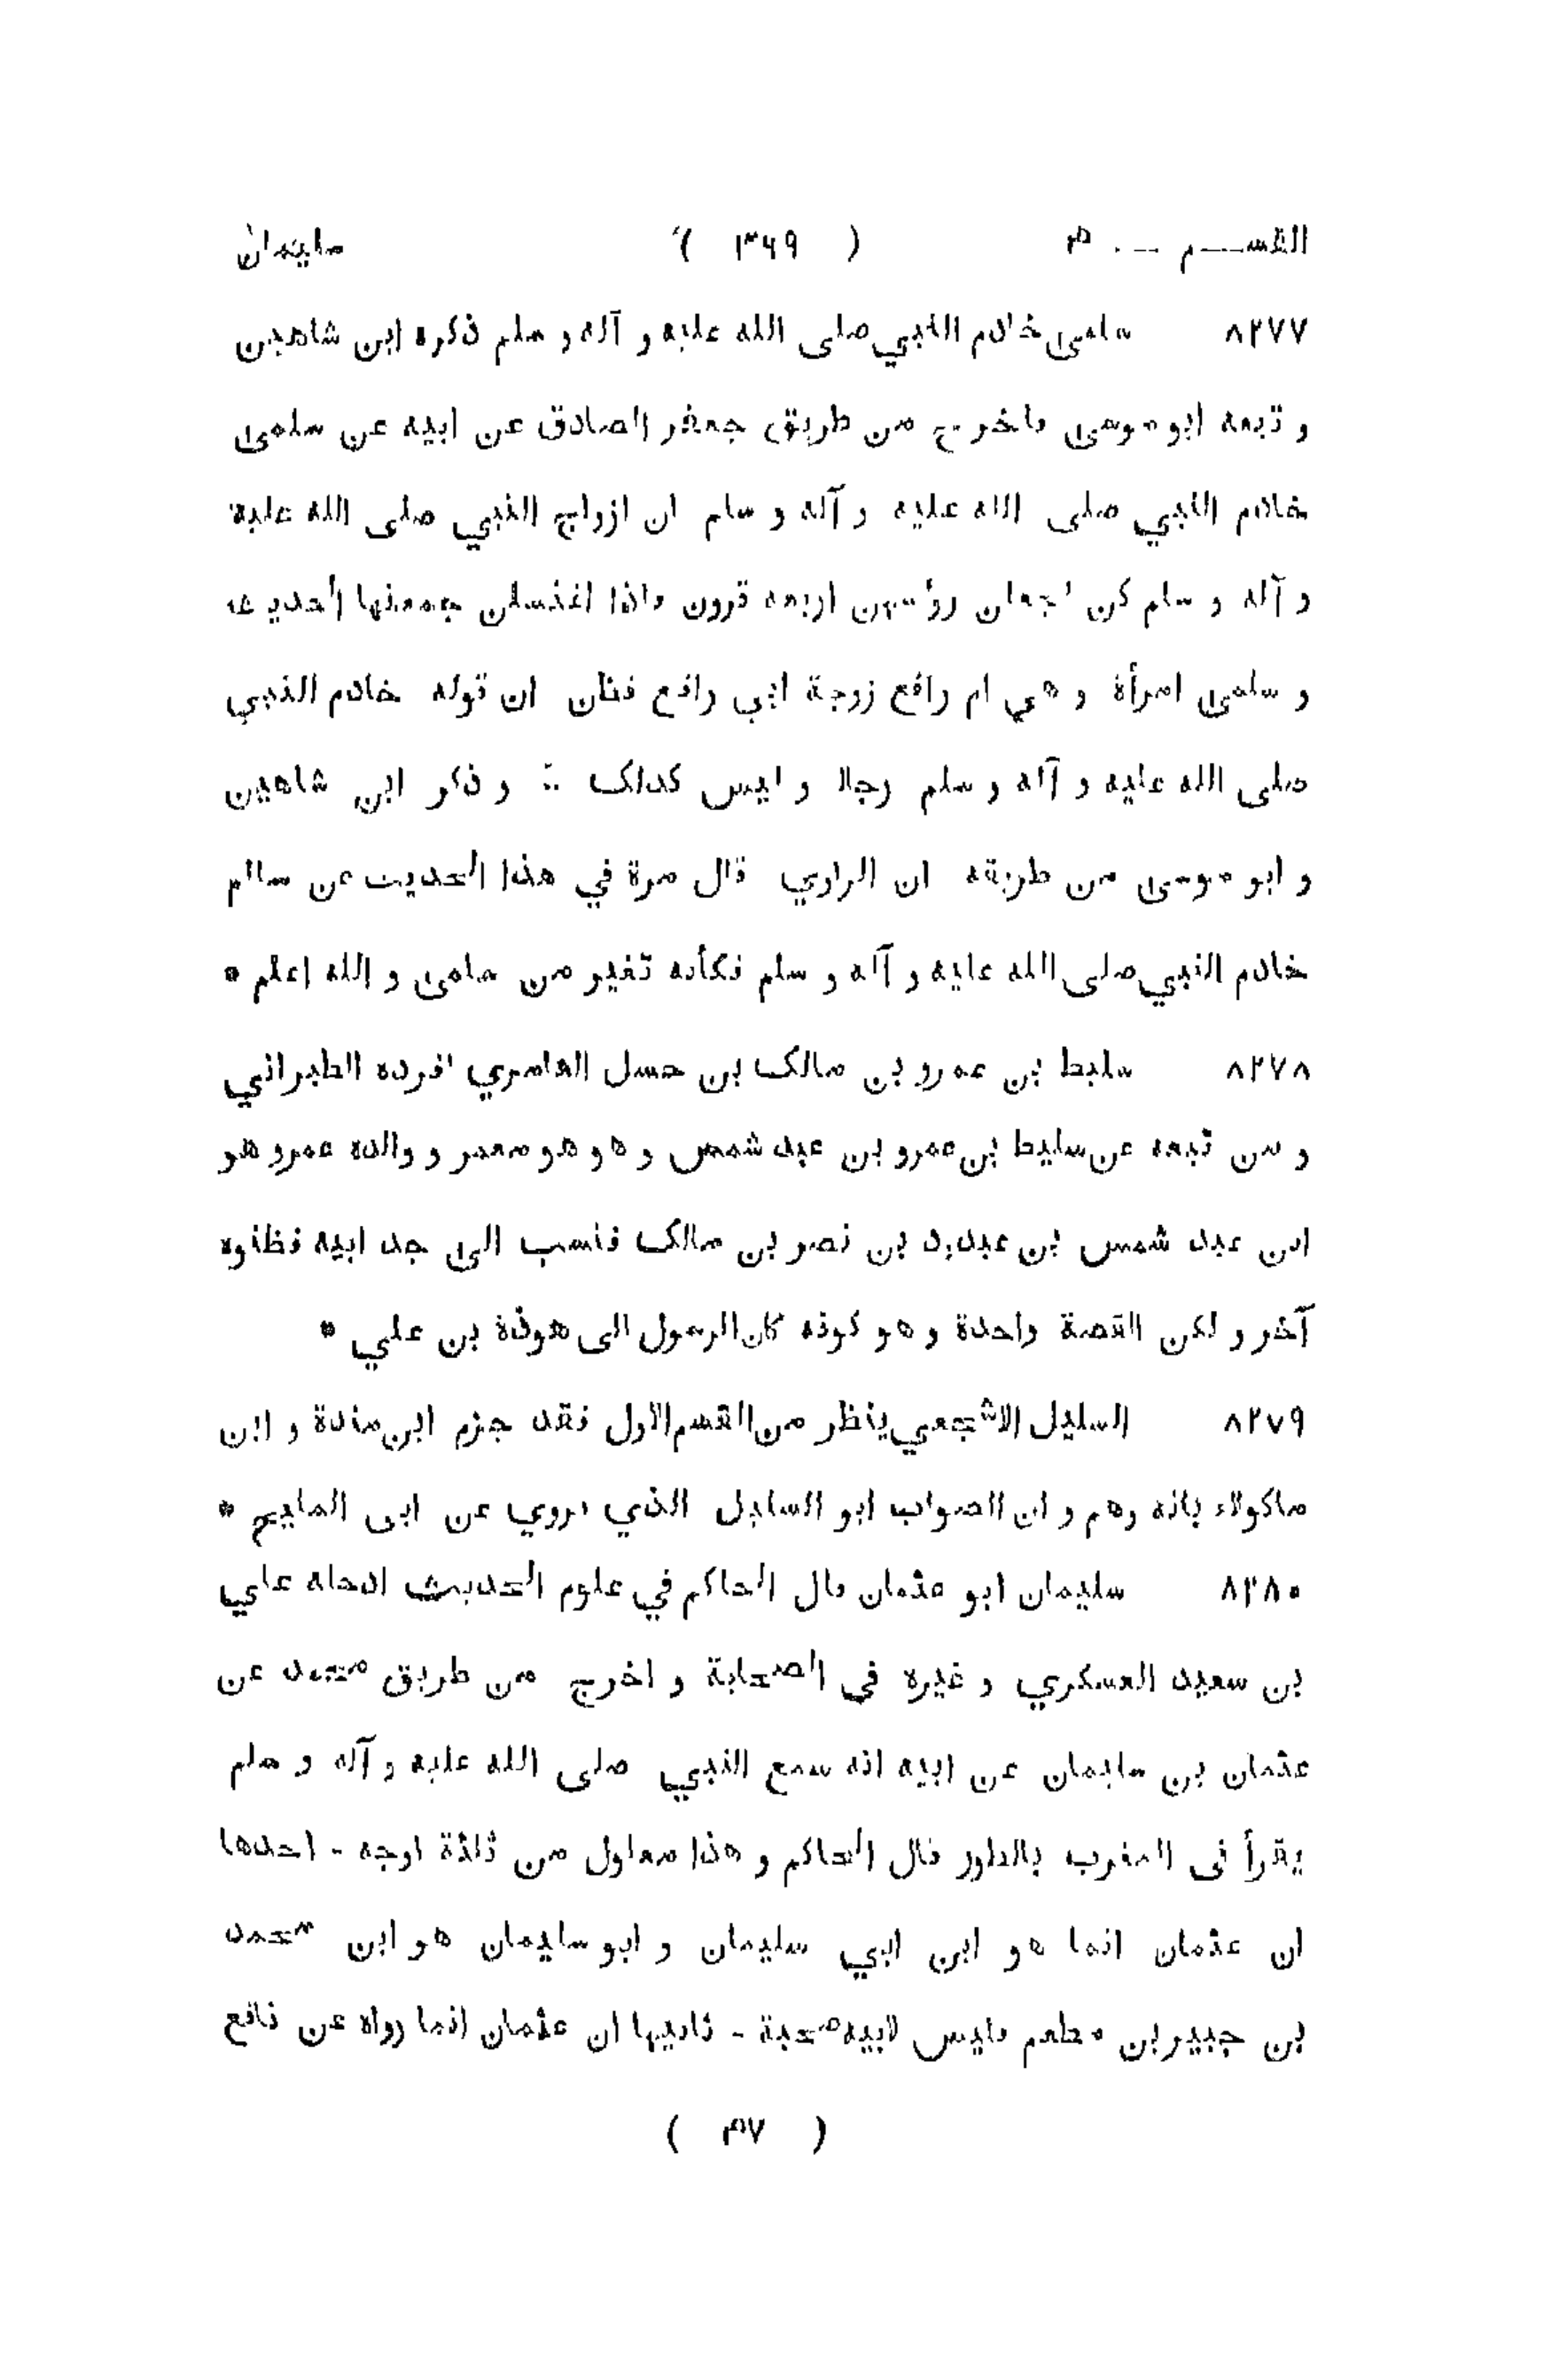 القســـم — ۴ ( ٣٦٩ ) سليمان
٨٢٧٧ سلمى خادم النبي صلى الله عليه و آله و سلم ذكره ابن شاهين
و تبعه ابو موسى فاخرج من طريق جعفر الصادق عن ابيه عن سلمى
خادم النبي صلى الله عليه و آله و سلم ان ازواج النبي صلى الله عليه
و آله و سلم كن يجعلن رؤسهن اربعه قرون فاذا اغتسلن جمعنها الحديث
و سلمى امرأة و هي ام رافع زوجة ابي رافع فظن ان قوله خادم النبي
صلى الله عليه و آله و سلم رجلا و ليس كذلك :: و ذكر ابن شاهين
و ابو موسى من طريقه ان الراوي قال مرة في هذا الحديث عن سالم
خادم النبي صلى الله عليه و آله و سلم فكأنه تغير من سلمى و الله اعلم *
٨٢٧٨ سليط بن عمرو بن مالك بن حسل العامري افرده الطبراني
و من تبعه عن سليط بن عمرو بن عبد شمس و هو هو معمر و والده عمرو هو
ابن عبد شمس بن عبدود بن نصر بن مالك فنسب الى جد ابيه فظنوه
آخر و لكن القصة واحدة و هو كونه كان الرسول الى هوذة بن علي *
٨٢٧٩ السليل الاشجعي ينظر من القسم الاول فقد جزم ابن مندة و ابن
ماكولاء بانه وهم و ان الصواب ابو السليل الذي يروي عن ابى المليح *
٨٢٨٠ سليمان ابو عثمان قال الحاكم في علوم الحديث ادخله علي
بن سعيد العسكري و غيره فى الصحابة و اخرج من طريق محمد عن
عثمان بن سليمان عن ابيه انه سمع النبي صلى الله عليه و آله و سلم
يقرأ فى المغرب بالطور قال الحاكم و هذا معلول من ثلثة اوجه - احدها
ان عثمان انما هو ابن ابي سليمان و ابو سليمان هو ابن محمد
بن جبير بن مطعم فليس لابيه صحبة - ثانيها ان عثمان انما رواه عن نافع
( ۴٧ )